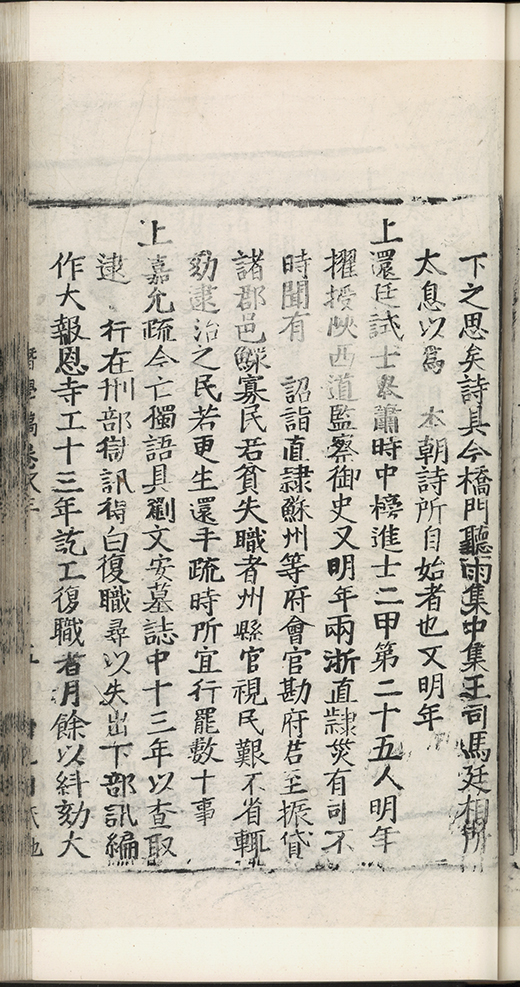 下之思矣詩具今橋門聽雨集中集王司馬廷相所
太息以爲 本朝詩所自始者也又明年
上還廷試士舉蕭時中榜進士二甲第二十五人明年
擢授陝西道監察御史又明年兩浙直隸災有司不
時聞有 詔詣直隸蘇州等府會官勘府若至振貸
諸郡邑鰥寡民若貧失職者州縣官視民艱不省輒
劾逮治之民若更生還手疏時所宜行罷數十事
上嘉允疏今亡獨語具劉文安墓誌中十三年以查取
逮 行在刑部獄訊得白復職尋以失出下部訊編
作大報恩寺工十三年訖工復職者月餘以糾劾大